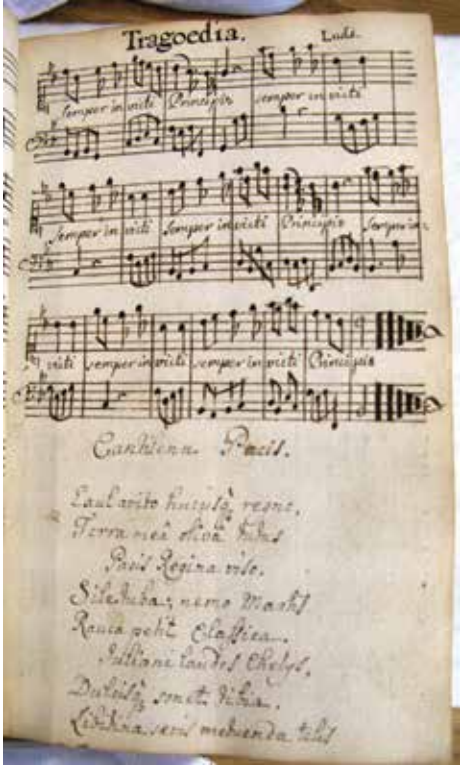 Tragoedia. Ludi.
semper in victi Principis semper in victi
semper in victi semper in victi Principis semper in-
victi semper in victi semper in victi Principis
Cantilena Pacis.
regno,
Terra mea oliva
Pacis Regina viso.
Sile tuba, nemo Martis
Rauca petit Classica.
Juliani laudes Chelys,
sonet tibia.
metuenda telis